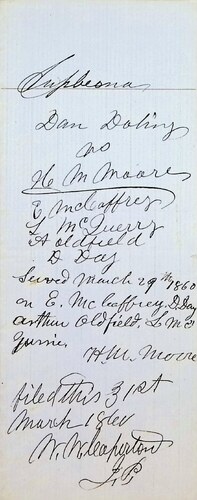 Suppeona
Dan Doling
no
H M Moore
E McCaffrey
L McQuerry
A oldfield
D Day
Served March 29th 1860
on E. McCaffrey, D. Day
Arthur Oldfield, L Mc
H. M. Moore
filed this 31st
March 1860
J P